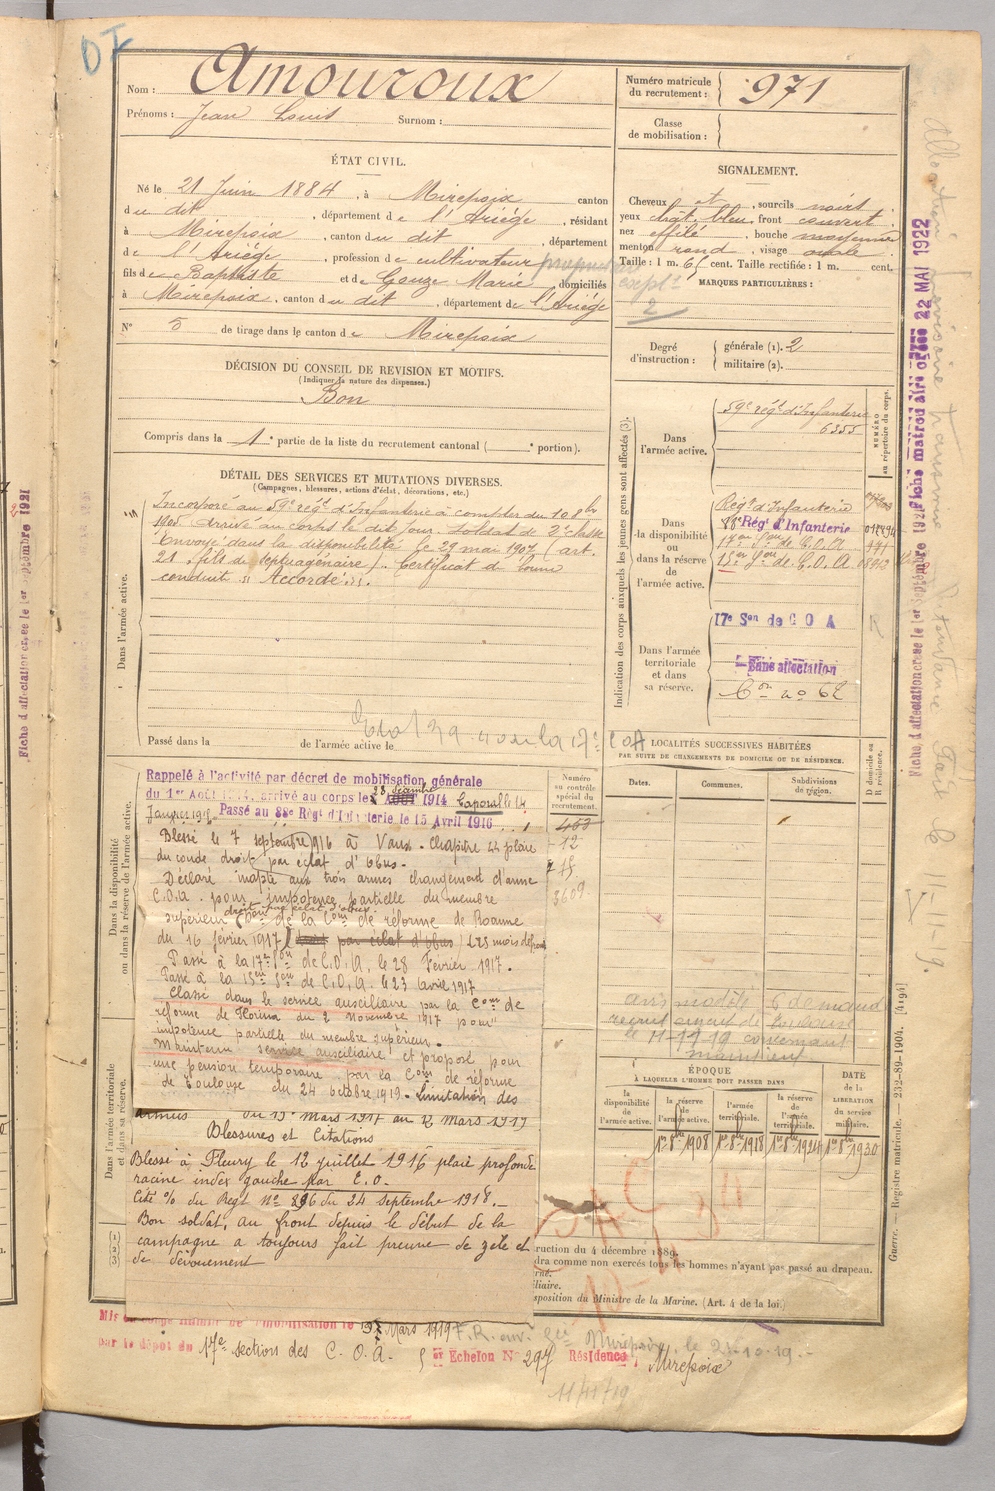 DI
Nom : Amouroux
Prénoms : Jean Louis Surnom :
Numéro matricule du recrutement : 971
Classe de mobilisation :
ÉTAT CIVIL.
Né le 21 Juin 1884, à Mirepoix canton
du dit, département de l'Ariège, résidant
à Mirepoix, canton du dit, département
de l'Ariège, profession de cultivateur
fils de Baptiste et de Gouze Marie domiciliés
à Mirepoix, canton du dit, département de l'Ariège
N° 5 de tirage dans le canton de Mirepoix
SIGNALEMENT.
Cheveux et, sourcils noirs
yeux chât. bleu, front couvert
nez effilé, bouche moyenne
menton rond, visage ovale
Taille : 1 m. 65 cent. Taille rectifiée : 1 m. cent.
MARQUES PARTICULIÈRES :
2
Degré d'instruction : générale (1). 2
militaire (2).
DÉCISION DU CONSEIL DE REVISION ET MOTIFS.
(Indiquer la nature des dispenses.)
Bon
Compris dans la 1e partie de la liste du recrutement cantonal ( e portion).
DÉTAIL DES SERVICES ET MUTATIONS DIVERSES.
(Campagnes, blessures, actions d'éclat, décorations, etc.)
Dans l'armée active.
Incorporé au 59e régt d'Infanterie à compter du 10 8bre
1905 arrivé au corps le dit jour soldat de 2e classe
Envoyé dans la disponibilité le 29 mai 1907 (art.
21, fils de septuagénaire). Certificat de bonne
conduite "Accordé".
Passé dans la de l'armée active le
Indication des corps auxquels les jeunes gens sont affectés (3).
NUMÉRO au répertoire du corps.
Dans l'armée active.
59e régt d'Infanterie
6355
Dans la disponibilité ou dans la réserve de l'armée active.
Régt d'Infanterie
88e Régt d'Infanterie
17e Son de C.O.A
15e Son de C.O.A.
Dans l'armée territoriale et dans sa réserve.
17e Son de C O A
Sans affectation
Con no 62
R
Fiche matricule créée 22 MAI 1922
Fiche d'affectation créée le 1er septembre 1921
Fiche d'affectation créée le 1er septembre 1921
LOCALITÉS SUCCESSIVES HABITÉES
PAR SUITE DE CHANGEMENTS DE DOMICILE OU DE RÉSIDENCE.
D domicile ou R résidence.
Dates. Communes. Subdivisions de région.
Dans la disponibilité ou dans la réserve de l'armée active.
Numéro au contrôle spécial du recrutement.
463
12
15
3609
Rappelé à l'activité par décret de mobilisation générale
du 1er Août 1914, arrivé au corps le AOUT 1914 Caporal le 14
Janvier 1915. Passé au 88e Régt d'Infanterie le 15 Avril 1916
Blessé le 7 septembre 1916 à Vaux - Chapitre 44 plaie
du coude droit par éclat d'obus.
Déclaré inapte aux trois armes changement d'arme
C.O.A. pour impotence partielle du membre
supérieur droit par éclat d'obus (Don de la Con de réforme de Roanne
du 16 février 1917) droit par éclat d'obus
Passé à la 17e Son de C.O.A. le 28 Février 1917.
Passé à la 15e Son de C.O.A. le 23 Avril 1917
Classé dans le service auxiliaire par la Con de
réforme de du 2 Novembre 1917 pour
impotence partielle du membre supérieur.
Maintenu service auxiliaire et proposé pour
une pension temporaire par la Con de réforme
de Toulouse du 24 octobre 1919. Limitation des
armées du 19 Mars 1917 au 12 Mars 1919
Blessures et Citations
Blessé à Fleury le 12 juillet 1916 plaie profonde
racine index gauche par E.O.
Cité % du Régt No 896 du 24 septembre 1918.
Bon soldat, au front depuis le début de la
campagne a toujours fait preuve de zèle et
de dévouement
Dans l'armée territoriale et dans sa réserve.
avis modèle 6 demandé
recrutement de Toulouse
le 11-11-19 concernant
maintient
ÉPOQUE
À LAQUELLE L'HOMME DOIT PASSER DANS
la disponibilité de l'armée active.
la réserve de l'armée active.
l'armée territoriale.
la réserve de l'armée territoriale.
DATE de la LIBÉRATION du service militaire.
1er 8bre 1908 1er 8bre 1918 1er 8bre 1924 1er 8bre 1930
ruction du 4 décembre 1889.
dra comme non exercés tous les hommes n'ayant pas passé au drapeau.
rné.
iliaire.
sposition du Ministre de la Marine. (Art. 4 de la loi.)
Guerre. — Registre matricule. — 232-89-1904. [4194]
Mis en congé illimité de démobilisation le Mars 1919
par le dépôt du 17e sections des C.O.A. Echelon No 297 Résidence, Mirepoix
Mirepoix, le 21-10-19.-
11/11/19